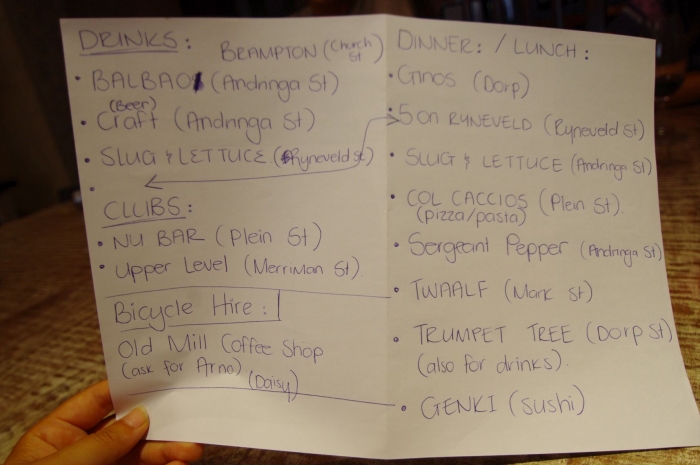 DRINKS:
BRAMPTON (Church St)
• BALBAO (Andringa St)
(Beer)
• Craft (Andringa St)
• SLUG & LETTUCE (Ryneveld St)
•
CLUBS:
• NU BAR (Plein St)
• Upper Level (Merriman St)
Bicycle Hire:
Old Mill Coffee Shop
(ask for Arno)
(Daisy)
DINNER: / LUNCH:
• Ginos (Dorp)
• 5 on RYNEVELD (Ryneveld St)
• SLUG & LETTUCE (Andringa St)
• COL CACCIOS (Plein St).
(pizza/pasta)
• Sergeant Pepper (Andringa St)
• TWAALF (Mark St)
• TRUMPET TREE (Dorp St)
(also for drinks).
• GENKI (sushi)